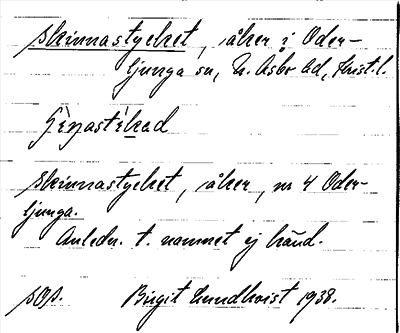 Skinnastycket, åker i Oder-
ljunga sn, N. Åsbo hd, Krist. l.
Skinnastycket, åker, nr 4 Oder-
ljunga.
Anledn. t. namnet ej känd.
Birgit Lundkvist 1938.